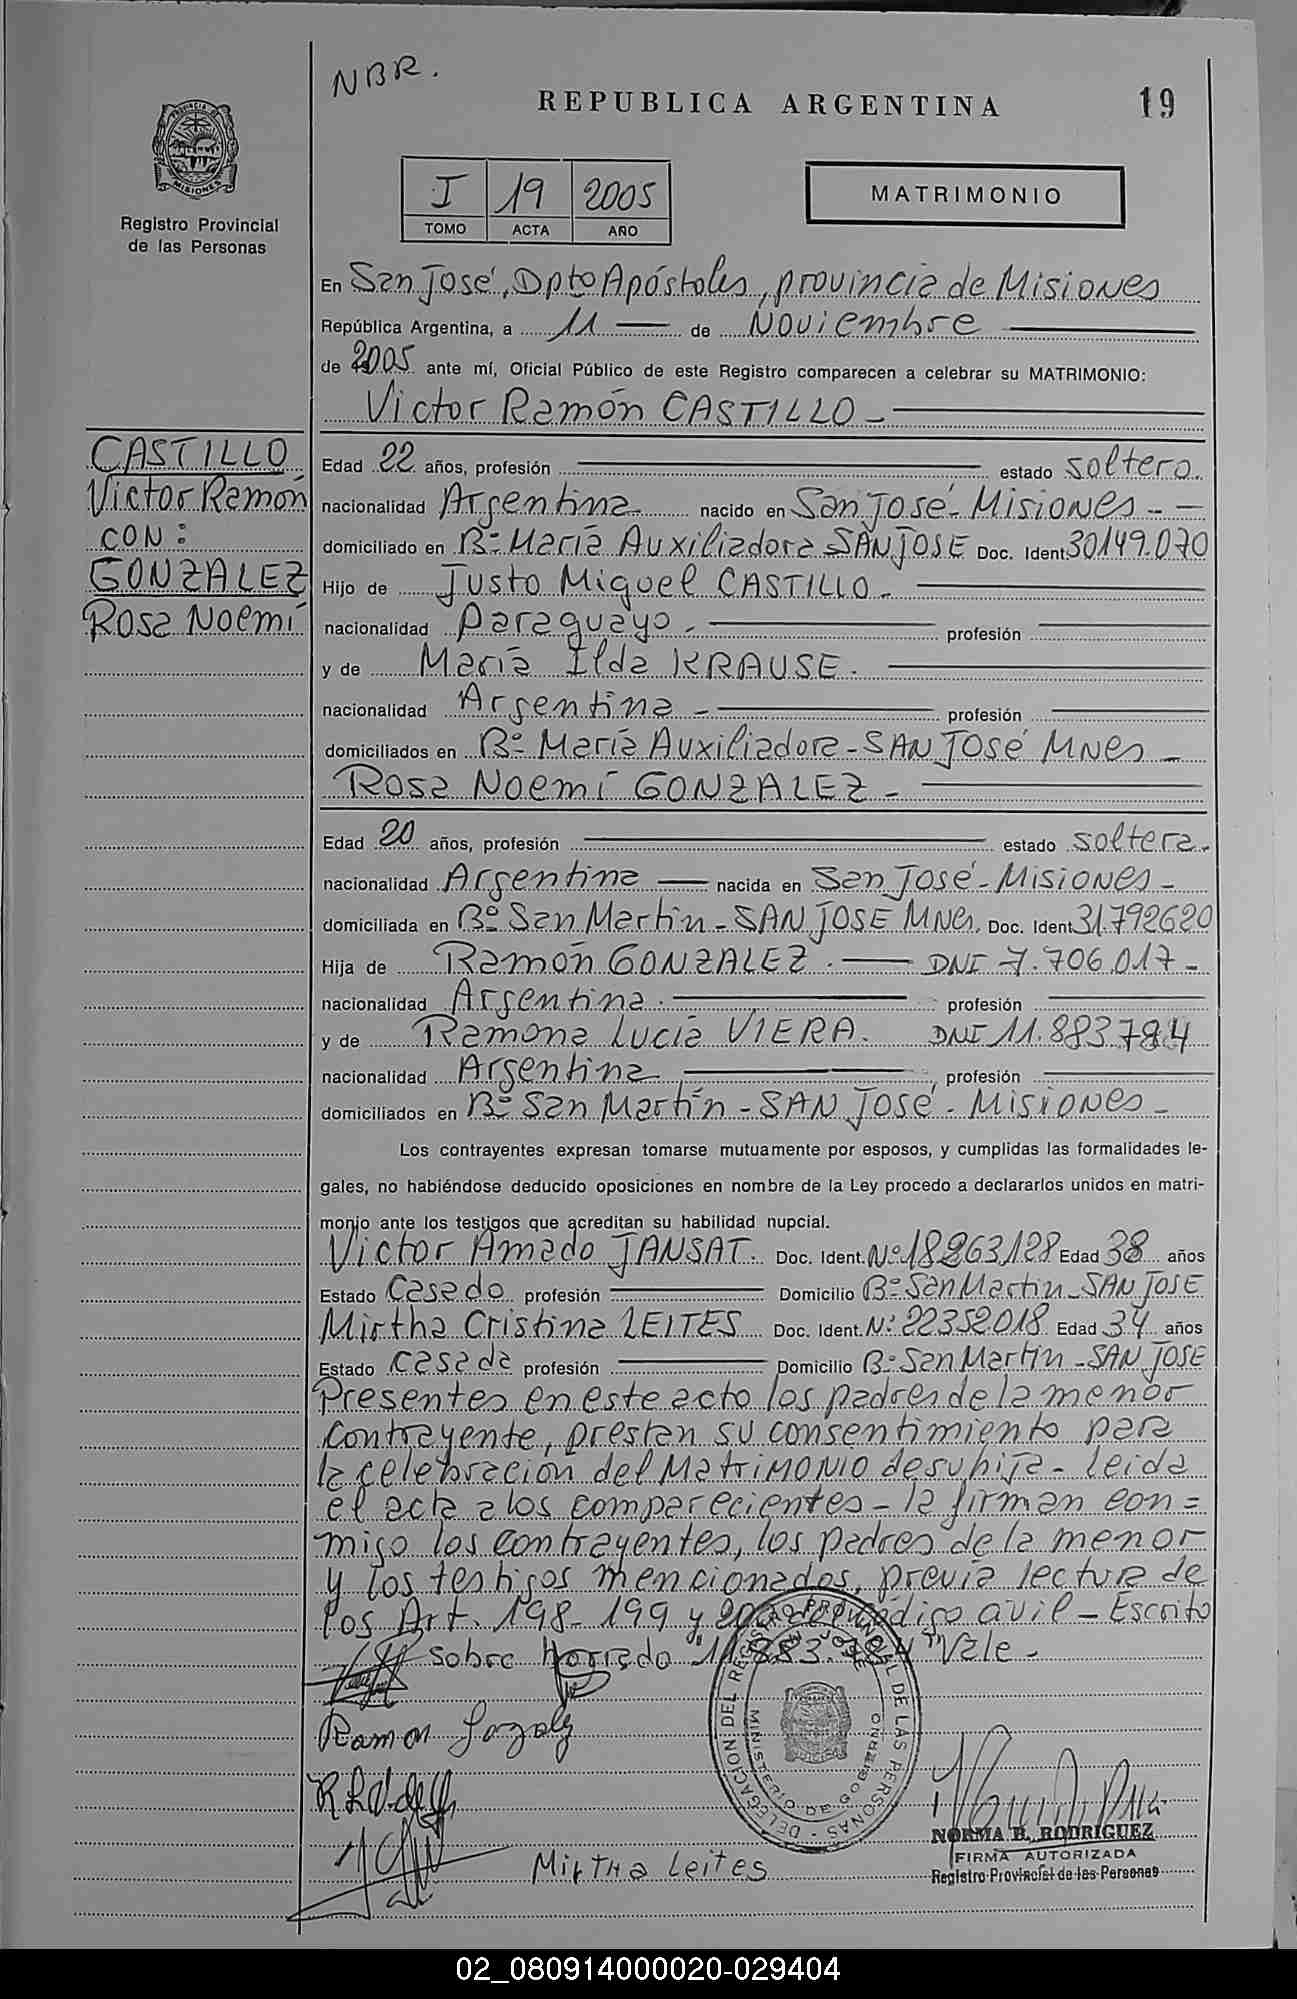 NBR.
REPUBLICA ARGENTINA
19
PROVINCIA DE
MISIONES
Registro Provincial
de las Personas
I 19 2005
TOMO ACTA AÑO
MATRIMONIO
En San José, Dpto Apóstoles, provincia de Misiones
República Argentina, a 11 — de Noviembre
de 2005 ante mí, Oficial Público de este Registro comparecen a celebrar su MATRIMONIO:
Victor Ramón CASTILLO -
CASTILLO
Victor Ramón
CON:
GONZALEZ
Rosa Noemí
Edad 22 años, profesión estado soltero.
nacionalidad Argentina nacido en San José - Misiones - -
domiciliado en Bº María Auxiliadora SAN JOSE Doc. Ident 30149.070
Hijo de Justo Miguel CASTILLO -
nacionalidad Paraguayo - profesión
y de María Ilda KRAUSE.
nacionalidad Argentina - profesión
domiciliados en Bº María Auxiliadora - SAN JOSÉ MNes -
Rosa Noemí GONZALEZ -
Edad 20 años, profesión estado soltera.
nacionalidad Argentina — nacida en San José - Misiones -
domiciliada en Bº San Martin - SAN JOSE MNes. Doc. Ident 31.792620
Hija de Ramón GONZALEZ. — DNI 7.706.017 -
nacionalidad Argentina. profesión
y de Ramona Lucía VIERA. DNI 11.883.784
nacionalidad Argentina profesión
domiciliados en Bº San Martín - SAN José - Misiones -
Los contrayentes expresan tomarse mutuamente por esposos, y cumplidas las formalidades le-
gales, no habiéndose deducido oposiciones en nombre de la Ley procedo a declararlos unidos en matri-
monio ante los testigos que acreditan su habilidad nupcial.
Victor Amado JANSAT. Doc. Ident. Nº 18263128 Edad 38 años
Estado Casado profesión Domicilio Bº San Martin - SAN JOSE
Mirtha Cristina LEITES Doc. Ident. Nº 22352018 Edad 34 años
Estado casada profesión Domicilio Bº San Martin - SAN JOSE
Presentes en este acto los padres de la menor
contrayente, prestan su consentimiento para
la celebración del MatriMONIO de su hija - leida
el acta a los comparecientes - la firman con=
migo los contrayentes, los padres de la menor
y los testigos mencionados, previa lectura de
los Art. 198 - 199 y del código civil - Escrito
sobre borrado "11.883.784" Vale -
DELEGACION DEL REGISTRO PROVINCIAL DE LAS PERSONAS -
SAN JOSE
MINISTERIO DE GOBIERNO
Ramon
Mirtha Leites
NORMA B. RODRIGUEZ
FIRMA AUTORIZADA
Registro Provincial de las Personas
02_080914000020-029404